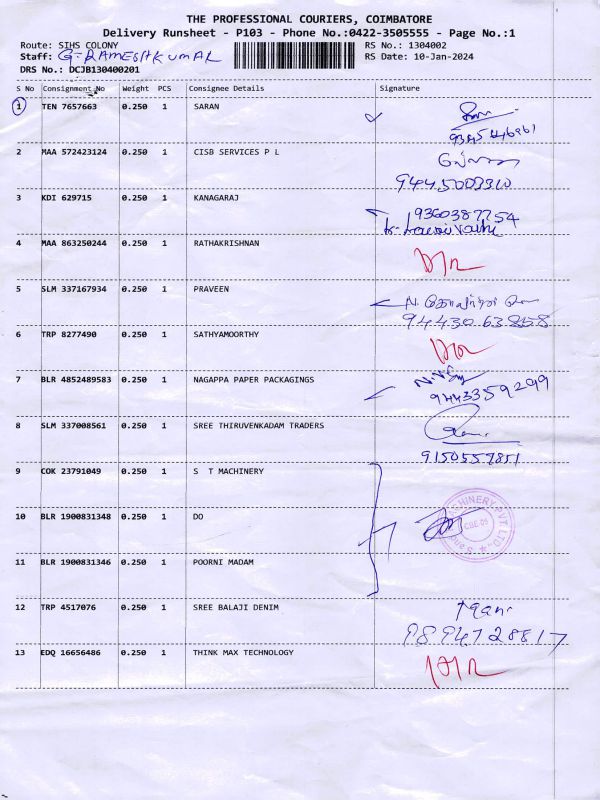 THE PROFESSIONAL COURIERS, COIMBATORE
Delivery Runsheet - P103 - Phone No.:0422-3505555 - Page No.:1
Route: SIHS COLONY RS No.: 1304002
Staff: G. RAMESHKUMAR RS Date: 10-Jan-2024
DRS No.: DCJB130400201
S No Consignment No Weight PCS Consignee Details Signature
1 TEN 7657663 0.250 1 SARAN
2 MAA 572423124 0.250 1 CISB SERVICES P L
9445003310
3 KDI 629715 0.250 1 KANAGARAJ
9360387754
4 MAA 863250244 0.250 1 RATHAKRISHNAN
5 SLM 337167934 0.250 1 PRAVEEN
9443063858
6 TRP 8277490 0.250 1 SATHYAMOORTHY
7 BLR 4852489583 0.250 1 NAGAPPA PAPER PACKAGINGS
9443359299
8 SLM 337008561 0.250 1 SREE THIRUVENKADAM TRADERS
9150557851
9 COK 23791049 0.250 1 S T MACHINERY
10 BLR 1900831348 0.250 1 DO
MACHINERY PVT. LTD.,
CBE-05
11 BLR 1900831346 0.250 1 POORNI MADAM
12 TRP 4517076 0.250 1 SREE BALAJI DENIM
Mani
9894728817
13 EDQ 16656486 0.250 1 THINK MAX TECHNOLOGY